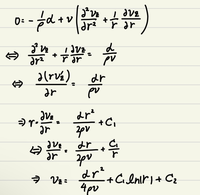 0 = -\frac{1}{\rho}\alpha + \nu\left(\frac{\partial^2 v_z}{\partial r^2} + \frac{1}{r}\frac{\partial v_z}{\partial r}\right)
⇔ \frac{\partial^2 v_z}{\partial r^2} + \frac{1}{r}\frac{\partial v_z}{\partial r} = \frac{\alpha}{\rho\nu}
⇔ \frac{\partial(r v_z')}{\partial r} = \frac{\alpha r}{\rho\nu}
⇒ r \cdot \frac{\partial v_z}{\partial r} = \frac{\alpha r^2}{2\rho\nu} + C_1
⇔ \frac{\partial v_z}{\partial r} = \frac{\alpha r}{2\rho\nu} + \frac{C_1}{r}
⇒ v_z = \frac{\alpha r^2}{4\rho\nu} + C_1 \ln|r| + C_2